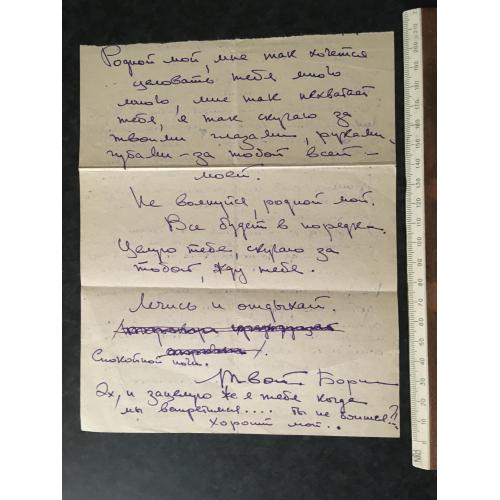 Родной мой, мне так хочется
целовать тебя много
много, мне так не хватает
тебя, я так скучаю за
твоими глазами, руками,
губами – за тобой всей –
моей.
Не волнуйся, родной мой.
Все будет в порядке.
Целую тебя, скучаю за
тобой, жду тебя.
Лечись и отдыхай.
Спокойной ночи.
Твой Борис
Эх, и зацелую же я тебя когда
мы встретимся.... Ты не боишься?!
Хороший мой..